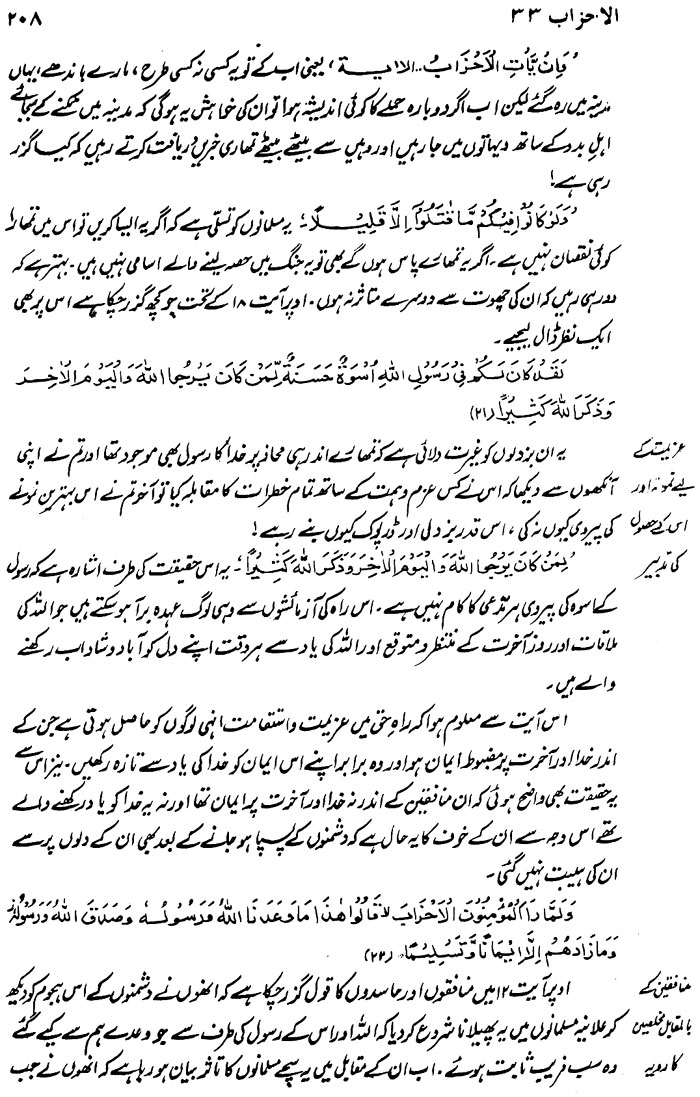 الاحزاب ۳۳
۲۰۸
’وَاِنْ يَّاْتِ الْاَحْزَابُ ... الاية‘، یعنی اب کے تو یہ کسی نہ کسی طرح، مارے باندھے، یہاں
مدینہ میں رہ گئے لیکن اب اگر دوبارہ حملے کا کوئی اندیشہ ہوا تو ان کی خواہش یہ ہو گی کہ مدینہ میں ٹکنے کے بجائے
اہلِ بدو کے ساتھ دیہاتوں میں جا رہیں اور وہیں سے بیٹھے بیٹھے تمھاری خبریں دریافت کرتے رہیں کہ کیسا گزر
رہی ہے!
’وَلَوْ كَانُوْا فِيْكُمْ مَّا قٰتَلُوْٓا اِلَّا قَلِيْلًا‘: یہ مسلمانوں کو تسلی ہے کہ اگر یہ ایسا کریں تو اس میں تمھارا
کوئی نقصان نہیں ہے۔ اگر یہ تمھارے پاس ہوں گے بھی تو یہ جنگ میں حصہ لینے والے اسامی نہیں ہیں۔ بہتر ہے کہ
دور ہی رہیں کہ ان کی چھوت سے دوسرے متاثر نہ ہوں۔ اوپر آیت ۱۸ کے تحت جو کچھ گزر چکا ہے اس پر بھی
ایک نظر ڈال لیجیے۔
لَقَدْ كَانَ لَكُمْ فِيْ رَسُوْلِ اللّٰهِ اُسْوَةٌ حَسَنَةٌ لِّمَنْ كَانَ يَرْجُوا اللّٰهَ وَالْيَوْمَ الْاٰخِرَ
وَذَكَرَ اللّٰهَ كَثِيْرًا (۲۱)
عزیمت کے
لیے نمونہ اور
اس کے حصول
کی تدبیر
یہ ان بزدلوں کو غیرت دلائی ہے کہ تمھارے اندر ہی محاذ پر خدا کا رسول بھی موجود تھا اور تم نے اپنی
آنکھوں سے دیکھا کہ اس نے کس عزم و ہمت کے ساتھ تمام خطرات کا مقابلہ کیا تو آخر تم نے اس بہترین نمونے
کی پیروی کیوں نہ کی، اس قدر بزدلی اور ڈرپوک کیوں بنے رہے!
’لِمَنْ كَانَ يَرْجُوا اللّٰهَ وَالْيَوْمَ الْاٰخِرَ وَذَكَرَ اللّٰهَ كَثِيْرًا‘: یہ اس حقیقت کی طرف اشارہ ہے کہ رسول
کے اسوہ کی پیروی ہر مدعی کا کام نہیں ہے۔ اس راہ کی آزمائشوں سے وہی لوگ عہدہ برآ ہو سکتے ہیں جو اللہ کی
ملاقات اور روز آخرت کے منتظر و متوقع اور اللہ کی یاد سے ہر وقت اپنے دل کو آباد و شاداب رکھنے
والے ہیں۔
اس آیت سے معلوم ہوا کہ راہِ حق میں عزیمت و استقامت انہی لوگوں کو حاصل ہوتی ہے جن کے
اندر خدا اور آخرت پر مضبوط ایمان ہو اور وہ برابر اپنے اس ایمان کو خدا کی یاد سے تازہ رکھیں۔ نیز اس سے
یہ حقیقت بھی واضح ہوئی کہ ان منافقین کے اندر نہ خدا اور آخرت پر ایمان تھا اور نہ یہ خدا کو یاد رکھنے والے
تھے اس وجہ سے ان کے خوف کا یہ حال ہے کہ دشمنوں کے پسپا ہو جانے کے بعد بھی ان کے دلوں پر سے
ان کی ہیبت نہیں گئی۔
وَلَمَّا رَاَ الْمُؤْمِنُوْنَ الْاَحْزَابَ لا قَالُوْا هٰذَا مَا وَعَدَنَا اللّٰهُ وَرَسُوْلُهٗ وَصَدَقَ اللّٰهُ وَرَسُوْلُهٗ
وَمَا زَادَهُمْ اِلَّآ اِيْمَانًا وَّتَسْلِيْمًا (۲۲)
منافقین کے
بالمقابل مخلصین
کا رویہ
اوپر آیت ۱۲ میں منافقوں اور حاسدوں کا قول گزر چکا ہے کہ انھوں نے دشمنوں کے اس ہجوم کو دیکھ
کر علانیہ مسلمانوں میں یہ پھیلانا شروع کر دیا کہ اللہ اور اس کے رسول کی طرف سے جو وعدے ہم سے کیے گئے
وہ سب فریب ثابت ہوئے۔ اب ان کے مقابل میں یہ سچے مسلمانوں کا تاثر بیان ہو رہا ہے کہ انھوں نے جب